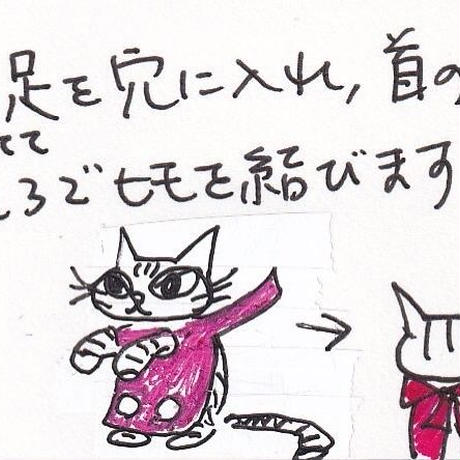 足を穴に入れ,首の
ろでヒモを結びます